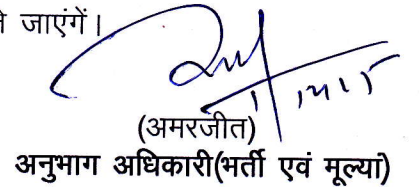 जाएंगें।
(अमरजीत)
अनुभाग अधिकारी(भर्ती एवं मूल्यां)